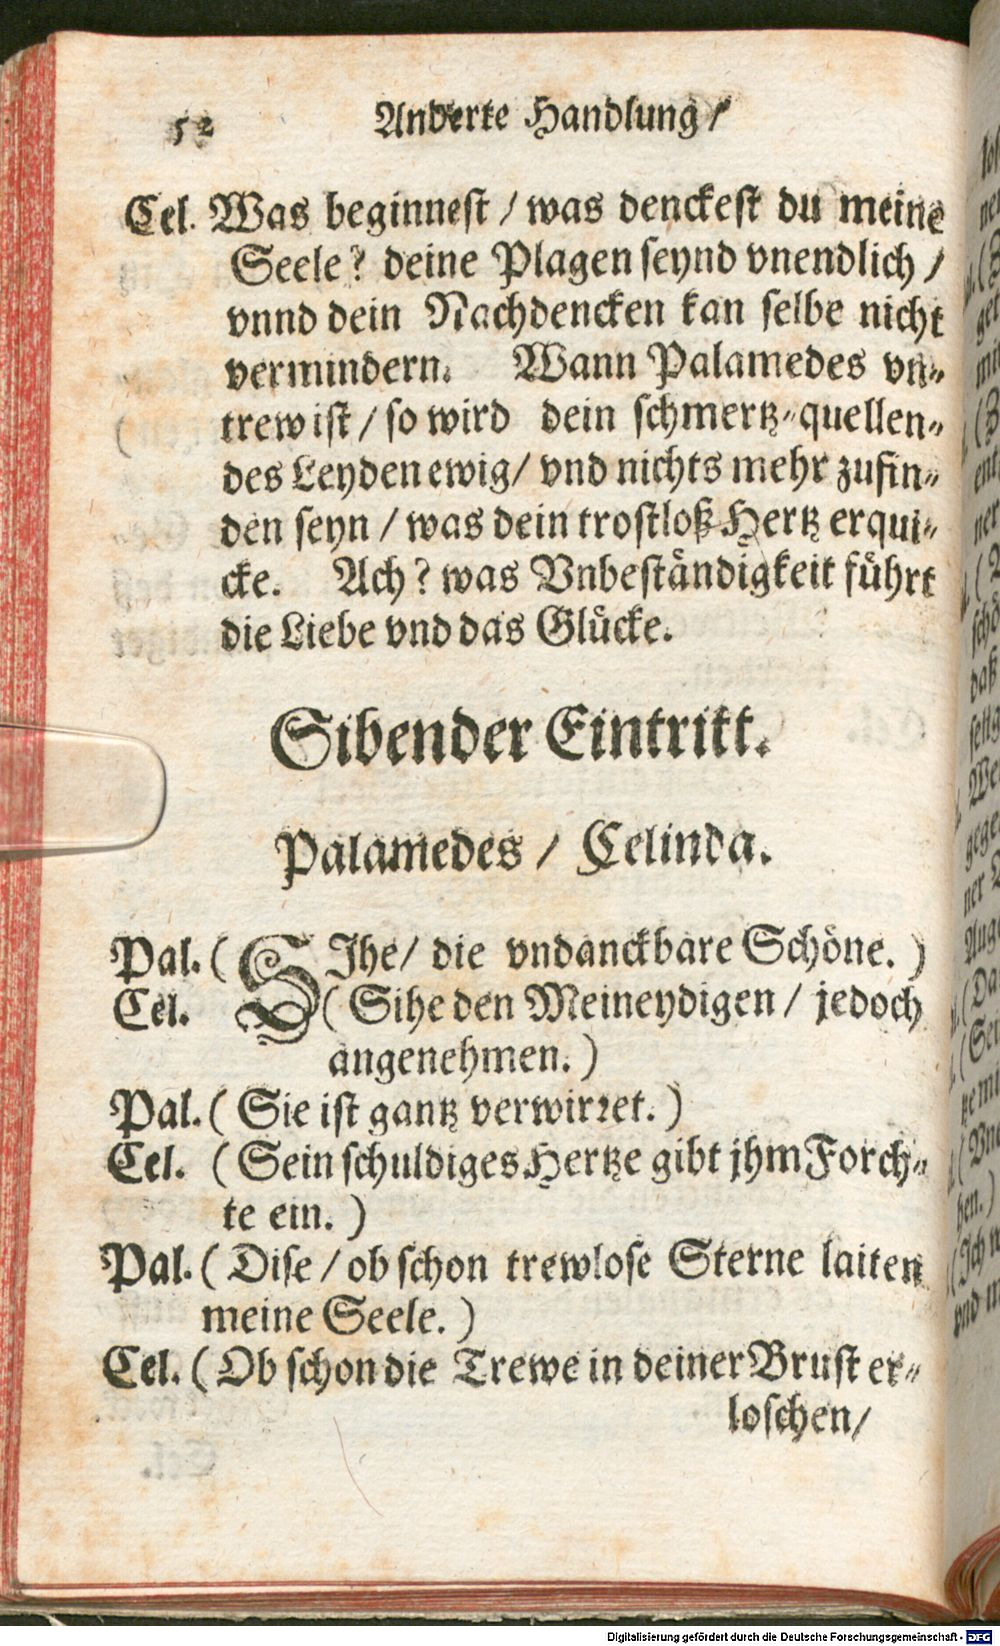 52 Anderte Handlung /
Cel. Was beginnest / was denckest du meine
Seele? deine Plagen seynd vnendlich /
vnnd dein Nachdencken kan selbe nicht
vermindern. Wann Palamedes vn-
trew ist / so wird dein schmertz-quellen-
des Leyden ewig / vnd nichts mehr zufin-
den seyn / was dein trostloß Hertz erqui-
cke. Ach? was Vnbeständigkeit führt
die Liebe vnd das Glücke.
Sibender Eintritt.
Palamedes / Celinda.
Pal. ( SIhe / die vndanckbare Schöne. )
Cel. ( Sihe den Meineydigen / jedoch
angenehmen. )
Pal. ( Sie ist gantz verwirret. )
Cel. ( Sein schuldiges Hertze gibt jhm Forch-
te ein. )
Pal. ( Dise / ob schon trewlose Sterne laiten
meine Seele. )
Cel. ( Ob schon die Trewe in deiner Brust er-
loschen /
Digitalisierung gefördert durch die Deutsche Forschungsgemeinschaft - DFG